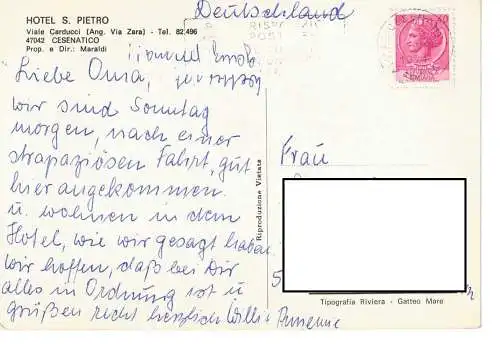 HOTEL S. PIETRO
Viale Carducci (Ang. Via Zara) - Tel. 82.496
47042 CESENATICO
Prop. e Dir.: Maraldi
Deutschland
Liebe Oma,
wir sind Sonntag
morgen, nach einer
strapaziösen Fahrt, gut
hier angekommen
u. wohnen in dem
Hotel, wie wir gesagt haben
Wir hoffen, daß bei Dir
alles in Ordnung ist u
grüßen recht herzlich Willi +
Riproduzione Vietata
Frau
5
Tipografia Riviera - Gatteo Mare